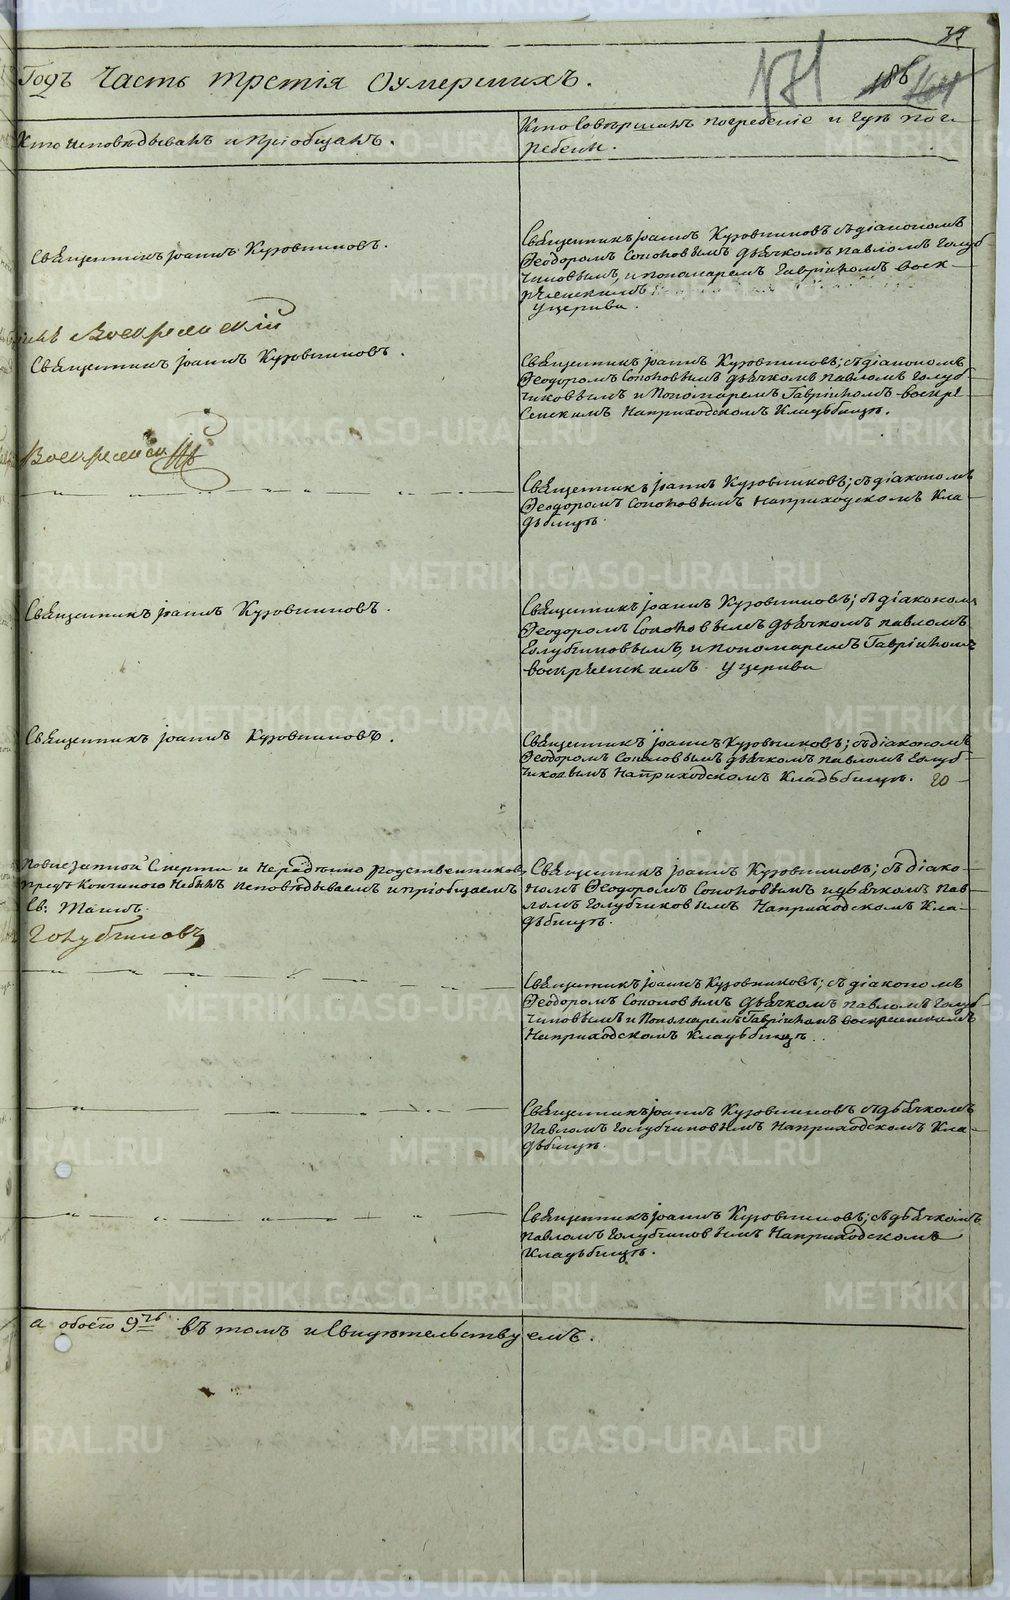 39
Годъ Часть третія Оумершихъ.
171
Кто исповѣдывалъ и пріобщалъ.
Кто Совѣршалъ погребеніе и гдѣ пог-
ребены.
Священникъ Іоаннъ Кузовниковъ.
Священникъ Іоаннъ Кузовниковъ съ діакономъ
Ѳеодоромъ Соколовымъ дьячкомъ Павломъ Голуб
чиковымъ, и пономаремъ Гавріиломъ Воск-
рѣсенскимъ
у церкви.
Воскресенскій
Священникъ Іоаннъ Кузовниковъ.
Священникъ Іоаннъ Кузовниковъ; съ діакономъ
Ѳеодоромъ Соколовымъ дьячкомъ Павломъ Голуб-
чиковымъ и Пономаремъ Гавріиломъ Воскре
сенскимъ На приходскомъ Кладьбищѣ.
Воскресенскій
Священникъ Іоаннъ Кузовниковъ; съ діакономъ
Ѳеодоромъ Соколовымъ На приходскомъ Кла-
дьбищѣ.
Священникъ Іоаннъ Кузовниковъ.
Священникъ Іоаннъ Кузовниковъ; съ діакономъ
Ѳеодоромъ Соколовымъ дьячкомъ Павломъ
Голубчиковымъ, и пономаремъ Гавріиломъ
Воскрѣсенскимъ у церкви
Священникъ Іоаннъ Кузовниковъ.
Священникъ Іоаннъ Кузовниковъ; съ діакономъ
Ѳеодоромъ Соколовымъ дьячкомъ Павломъ Голуб-
чиковымъ На приходскомъ Кладьбищѣ. 20
По внезапной Смерти и Нерадѣнію родственниковъ
предъ Кончиною Небылъ исповѣдываемъ и пріобщаемъ
Св: Таинъ.
Голубчиковъ
Священникъ Іоаннъ Кузовниковъ; съ діако-
номъ Ѳеодоромъ Соколовымъ и дьячкомъ Пав-
ломъ Голубчиковымъ На приходскомъ Кла-
дьбищѣ.
Священникъ Іоаннъ Кузовниковъ; съ діакономъ
Ѳеодоромъ Соколовымъ дьячкомъ Павломъ Голуб-
чиковымъ и Пономаремъ Гавріиломъ Воскресенскимъ
На приходскомъ Кладьбищѣ.
Священникъ Іоаннъ Кузовниковъ съ дьячкомъ
Павломъ Голубчиковымъ На приходскомъ Кла-
дьбищѣ.
Священникъ Іоаннъ Кузовниковъ; съ дьячкомъ
Павломъ Голубчиковымъ На приходскомъ
Кладьбищѣ.
а обоего 9ть въ томъ и Свидѣтельствуемъ.
METRIKI.GASO-URAL.RU